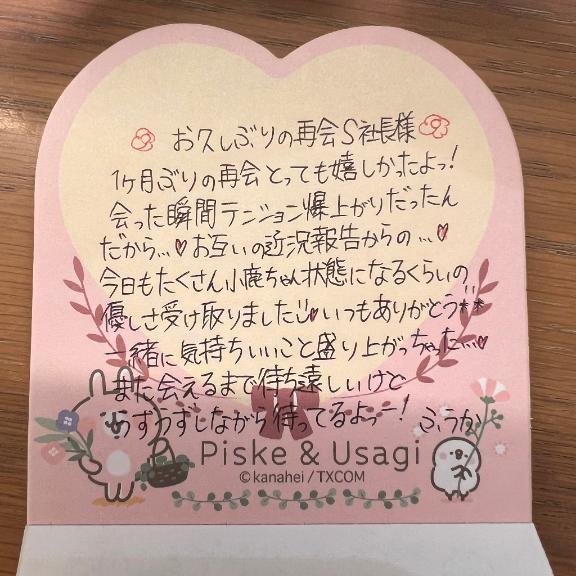 お久しぶりの再会S社長様
1ヶ月ぶりの再会とっても嬉しかったよっ!
会った瞬間テンション爆上がりだったん
だから…♥お互いの近況報告からの…♥
今日もたくさん小鹿ちゃん状態になるくらいの
優しさ受け取りました♥いつもありがとう
一緒に気持ちいいこと盛り上がっちゃった…♥
また会えるまで待ち遠しいけど
うずうずしながら待ってるよっー! ふうか
Piske & Usagi
©kanahei / TXCOM